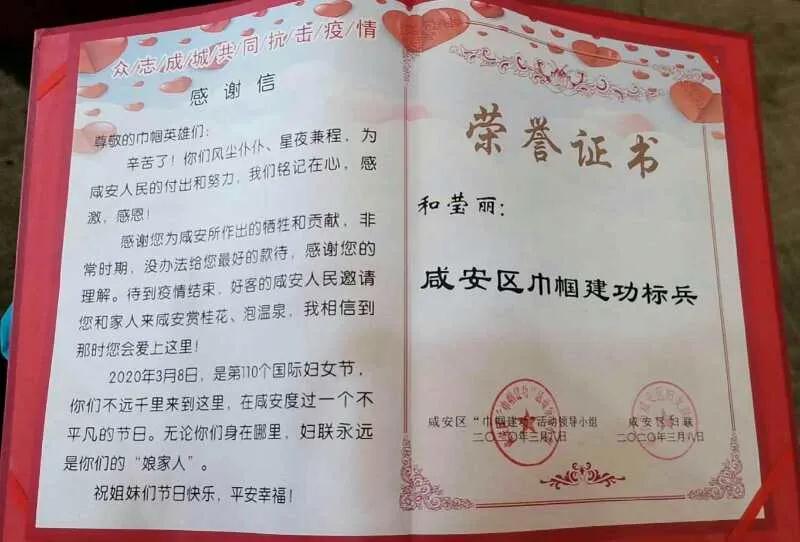 众/志/成/城/共/同/抗/击/疫/情
感 谢 信
尊敬的巾帼英雄们：
辛苦了！你们风尘仆仆、星夜兼程，为
咸安人民的付出和努力，我们铭记在心，感
激，感恩！
感谢您为咸安所作出的牺牲和贡献，非
常时期，没办法给您最好的款待，感谢您的
理解。待到疫情结束，好客的咸安人民邀请
您和家人来咸安赏桂花、泡温泉，我相信到
那时您会爱上这里！
2020年3月8日，是第110个国际妇女节，
你们不远千里来到这里，在咸安度过一个不
平凡的节日。无论你们身在哪里，妇联永远
是你们的“娘家人”。
祝姐妹们节日快乐，平安幸福！
荣誉证书
和莹丽：
咸安区巾帼建功标兵
咸安区“巾帼建功”活动领导小组
二〇二〇年三月八日
咸安区妇联
二〇二〇年三月八日